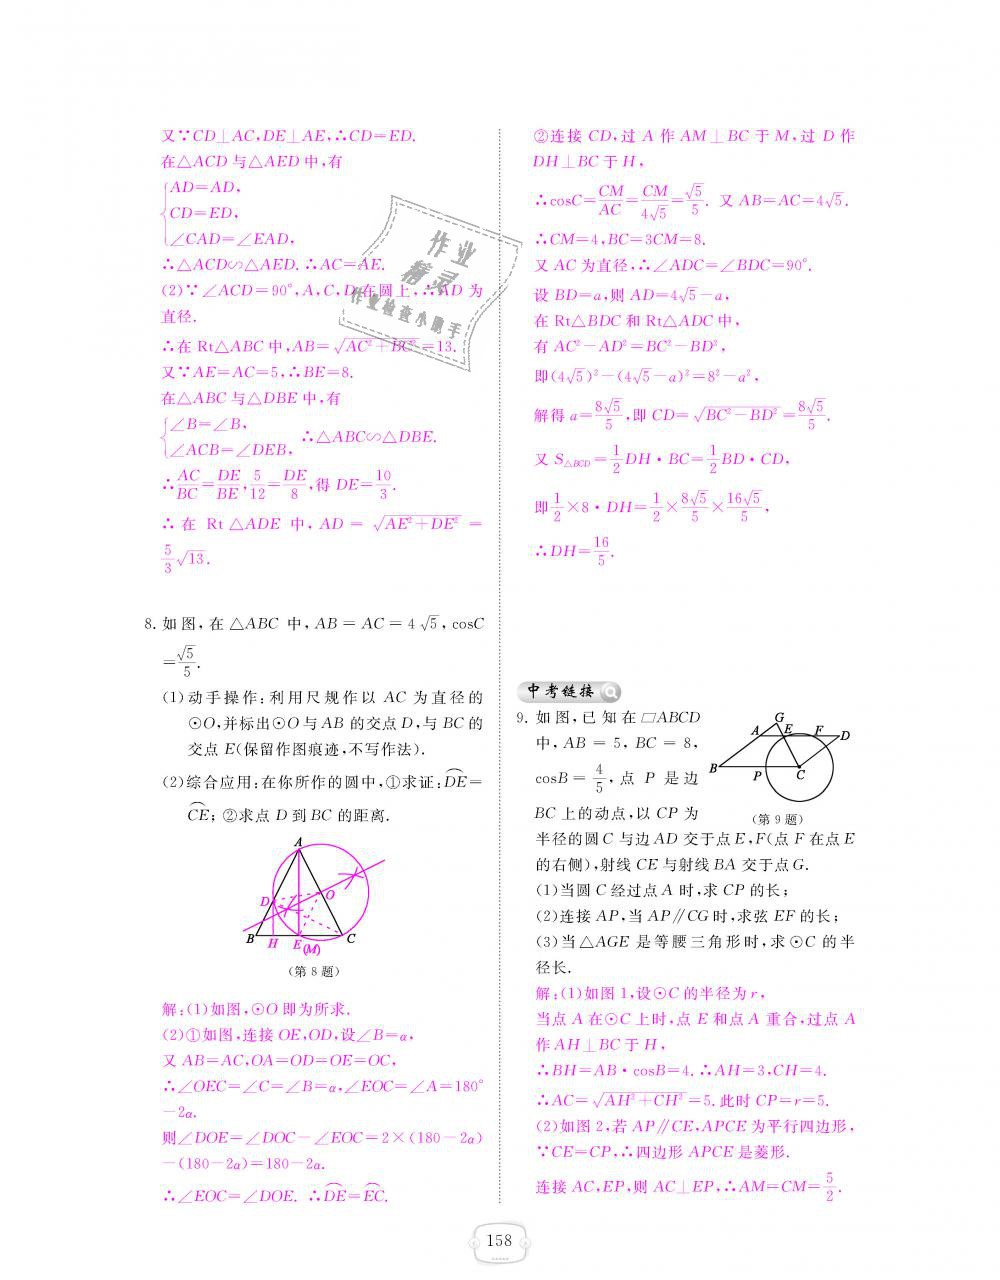 又∵CD⊥AC,DE⊥AE,∴CD=ED.
在△ACD与△AED中,有
AD=AD,
CD=ED,
∠CAD=∠EAD,
∴△ACD∽△AED.∴AC=AE.
(2)∵∠ACD=90°,A,C,D在圆上,∴AD为
直径.
∴在Rt△ABC中,AB=√(AC²+BC²)=13.
又∵AE=AC=5,∴BE=8.
在△ABC与△DBE中,有
∠B=∠B,
∠ACB=∠DEB,
∴△ABC∽△DBE.
∴AC/BC=DE/BE,5/12=DE/8,得DE=10/3.
∴在 Rt△ADE 中,AD=√(AE²+DE²)=
5/3√13.
8. 如图,在△ABC中,AB=AC=4√5,cosC
=√5/5.
(1)动手操作:利用尺规作以AC为直径的
⊙O,并标出⊙O与AB的交点D,与BC的
交点E(保留作图痕迹,不写作法).
(2)综合应用:在你所作的圆中,①求证:D͡E=
C͡E;②求点D到BC的距离.
A
D
O
B H E (M) C
(第8题)
解:(1)如图,⊙O即为所求.
(2)①如图,连接OE,OD,设∠B=α,
又AB=AC,OA=OD=OE=OC,
∴∠OEC=∠C=∠B=α,∠EOC=∠A=180°
−2α.
则∠DOE=∠DOC−∠EOC=2×(180−2α)
−(180−2α)=180−2α.
∴∠EOC=∠DOE. ∴D͡E=E͡C.
②连接CD,过A作AM⊥BC于M,过D作
DH⊥BC于H,
∴cosC=CM/AC=CM/4√5=√5/5. 又AB=AC=4√5.
∴CM=4,BC=3CM=8.
又AC为直径,∴∠ADC=∠BDC=90°.
设BD=a,则AD=4√5−a,
在Rt△BDC和Rt△ADC中,
有AC²−AD²=BC²−BD²,
即(4√5)²−(4√5−a)²=8²−a²,
解得a=8√5/5,即CD=√(BC²−BD²)=8√5/5.
又S△BCD=1/2DH·BC=1/2BD·CD,
即1/2×8·DH=1/2×8√5/5×16√5/5,
∴DH=16/5.
中考链接
9. 如图,已知在□ABCD
中,AB=5,BC=8,
cosB=4/5,点P是边
BC上的动点,以CP为
G
A E F D
B P C
(第9题)
半径的圆C与边AD交于点E,F(点F在点E
的右侧),射线CE与射线BA交于点G.
(1)当圆C经过点A时,求CP的长;
(2)连接AP,当AP∥CG时,求弦EF的长;
(3)当△AGE是等腰三角形时,求⊙C的半
径长.
解:(1)如图1,设⊙C的半径为r,
当点A在⊙C上时,点E和点A重合,过点A
作AH⊥BC于H,
∴BH=AB·cosB=4.∴AH=3,CH=4.
∴AC=√(AH²+CH²)=5.此时CP=r=5.
(2)如图2,若AP∥CE,APCE为平行四边形,
∵CE=CP,∴四边形APCE是菱形.
连接AC,EP,则AC⊥EP,∴AM=CM=5/2.
作业
精灵
作业检查小助手
158